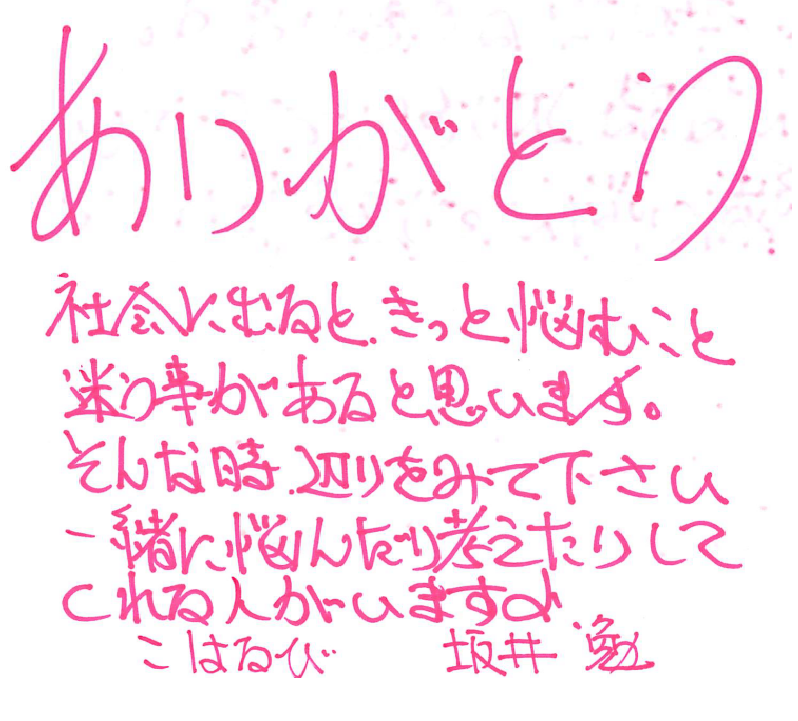 ありがとう
社会に出ると、きっと悩むこと
迷う事があると思います。
そんな時、辺りをみて下さい
一緒に悩んだり考えたりして
くれる人がいますよ
こはるび 坂井 勉